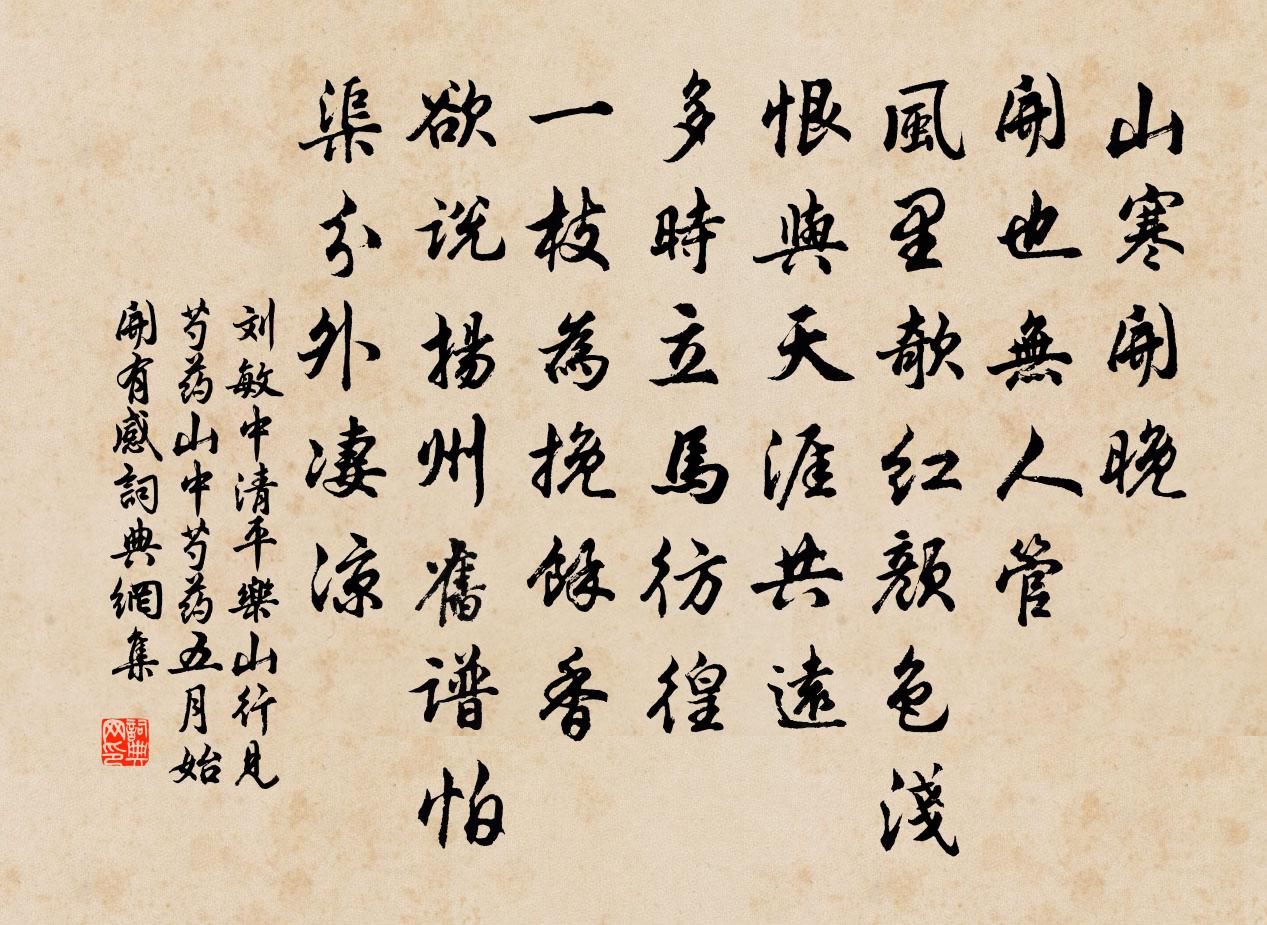 山寒開晚
開也無人管
風里欹红顏色淺
恨與天涯共遠
多時立馬彷徨
一枝為挽餘香
欲说揚州舊谱怕
渠分外凄凉
刘敏中清平樂山行見
芍药山中芍药五月始
開有感詞典網集
詞典
网印